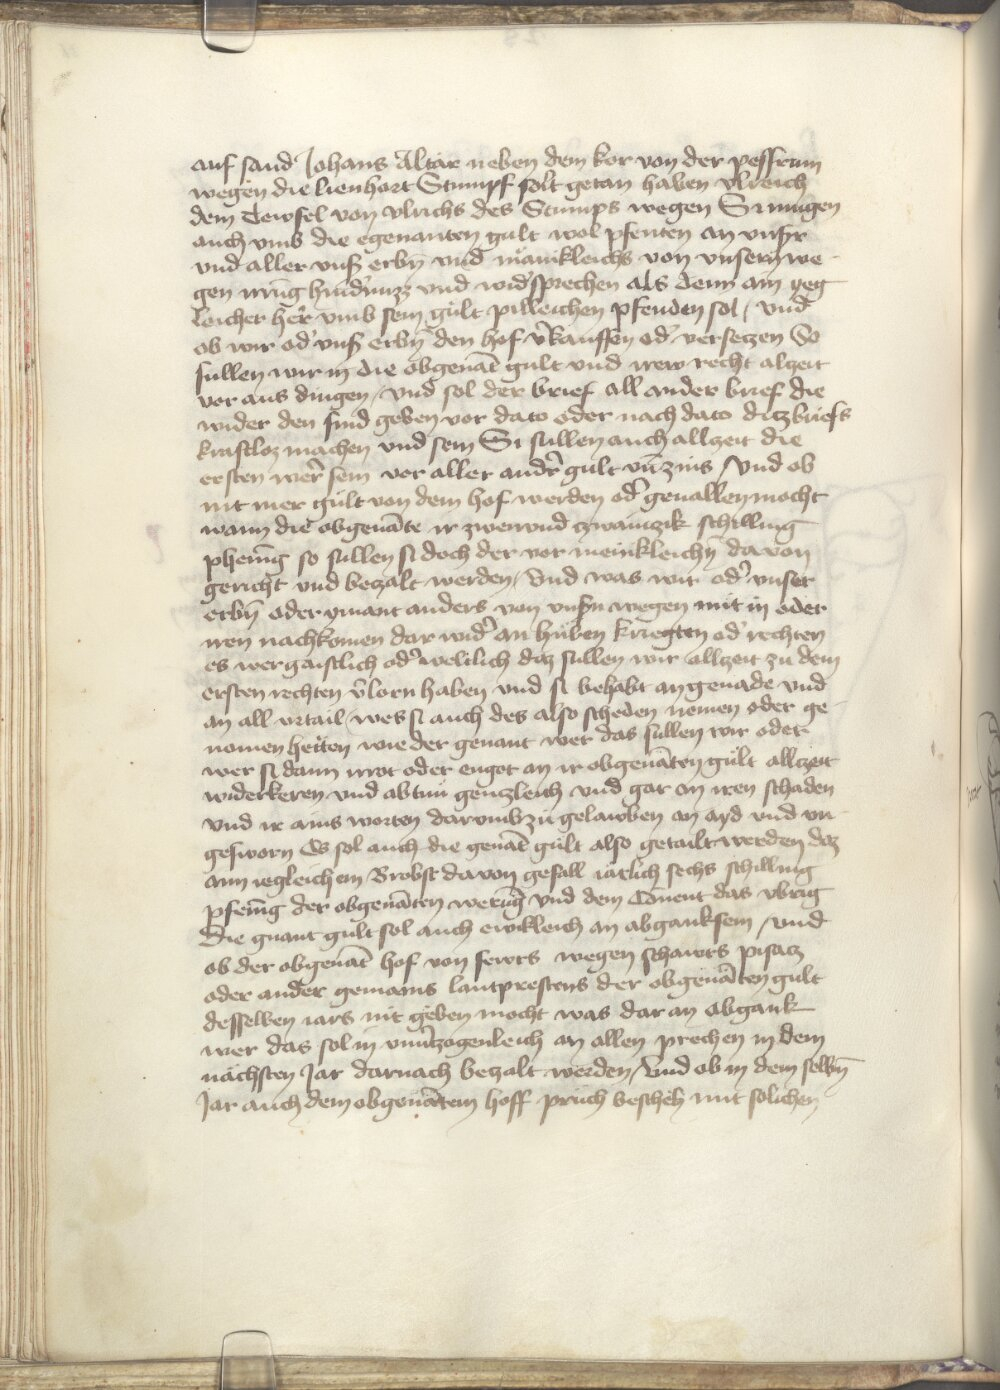 auf sand Johans Altar neben dem kor von der pessrum
wegen die lienhart Stumpf solt getan haben vlreich
dem Tewfel von vlrichs des Stumps wegen Si mugen
auch vmb die egenanten gult wol pfenten an vnßr
vnd aller vnß erbn̄ vnd mainkleichs von vnsern we
gen irrūg hindˀnuzz vnd widˀsprechen als denn ain yeg
leicher herˀ vmb sein gult pilleichen pfenden sol / vnd
ob wir odˀ vnß erbn̄ den hof vˀkauffen odˀ versetzen So
sullen wir in die obgenāt gult vnd irew recht alzeit
vor aus dingen / vnd sol der brief all ander brief die
wider den sind geben vor dato oder nach dato ditz briefs
kraftloz machen vnd sein Si sullen auch allzeit die
ersten werˀ sein vor aller andrˀ gult vn̄ zins / Vnd ob
nit mer gult von dem hof werden odˀ geuallen mocht
wann die obgenāte ir zwenvnd zwainczik schilling
phening so sullen si doch der vor meinkleichn̄ davon
gericht vnd bezalt werden / Vnd was wir odˀ vnser
erbn̄ oder ymant anders von vnßn wegen mit in oder
iren nachkomen dar widˀ an huben kriegten odˀ rechten
es wer gaistlich odˀ weltlich daz sullen wir allzeit zu dem
ersten rechten vˀlorn haben vnd si behabt an genade vnd
an all vrtail / wes si auch des also scheden nemen oder ge
nomen hetten wie der genant wer das sullen wir oder
wer si dann irrot oder engot an ir obgenāten gult allzeit
widerkeren vnd abtun gentzleich vnd gar an iren schaden
vnd ir ains worten darvmb zu gelawben an ayd vnd vn
gesworn Es sol auch die genāt gult also getailt werden daz
ainn iegleichem Brobst davon gefall iärlich sechs schilling
pfening der obgenāten werung vnd dem Conent das vbrig
Die gnant gult sol auch ewikleich an abgank sein / vnd
ob der obgenāt hof von fewrs wegen schawrs pisatz
oder ander gemains lantprestens der obgenāten gult
desselben iars nit geben mocht was dar an abgank
wer das sol in vnuˀtzogenleich an allen prechen in dem
nächsten Jar darnach bezalt werden / Vnd ob in dem selbn̄
Jar auch dem obgenātem hoff pruch bescheh mit solichen